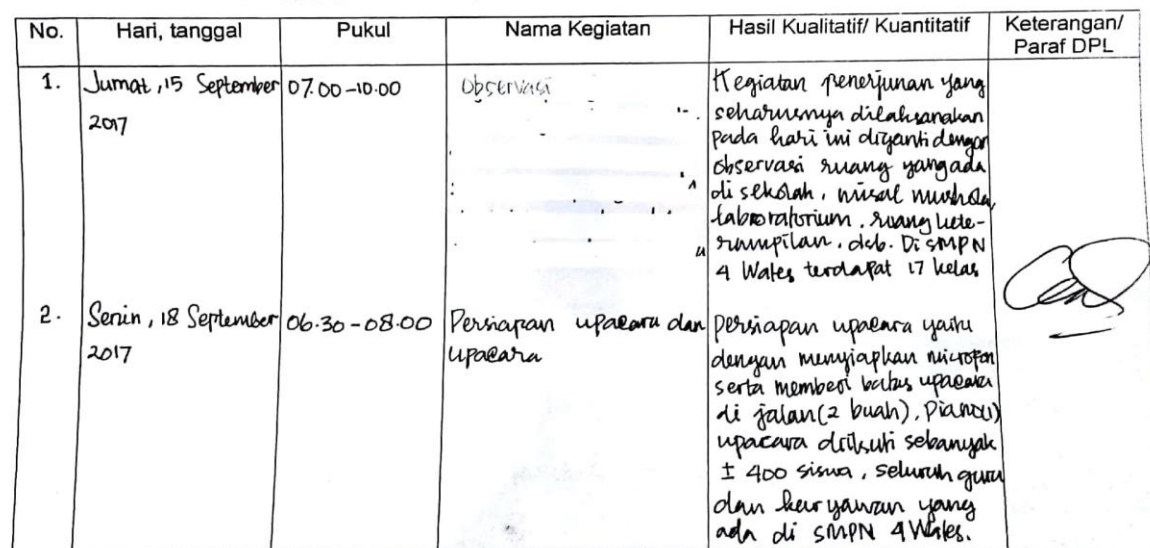 No. Hari, tanggal Pukul Nama Kegiatan Hasil Kualitatif/ Kuantitatif Keterangan/ Paraf DPL
1. Jumat, 15 September 2017 07.00-10.00 Observasi
Kegiatan penerjunan yang
seharusnya dilaksanakan
pada hari ini diganti dengan
observasi ruang yang ada
di sekolah, misal mushola,
laboratorium, ruang kete-
rampilan, dsb. Di SMPN
4 Wates terdapat 17 kelas
2. Senin, 18 September 2017 06.30-08.00 Persiapan upacara dan upacara
Persiapan upacara yaitu
dengan menyiapkan microfon
serta memberi batas upacara
di jalan (2 buah), piano (1)
upacara diikuti sebanyak
± 400 siswa, seluruh guru
dan karyawan yang
ada di SMPN 4 Wates.